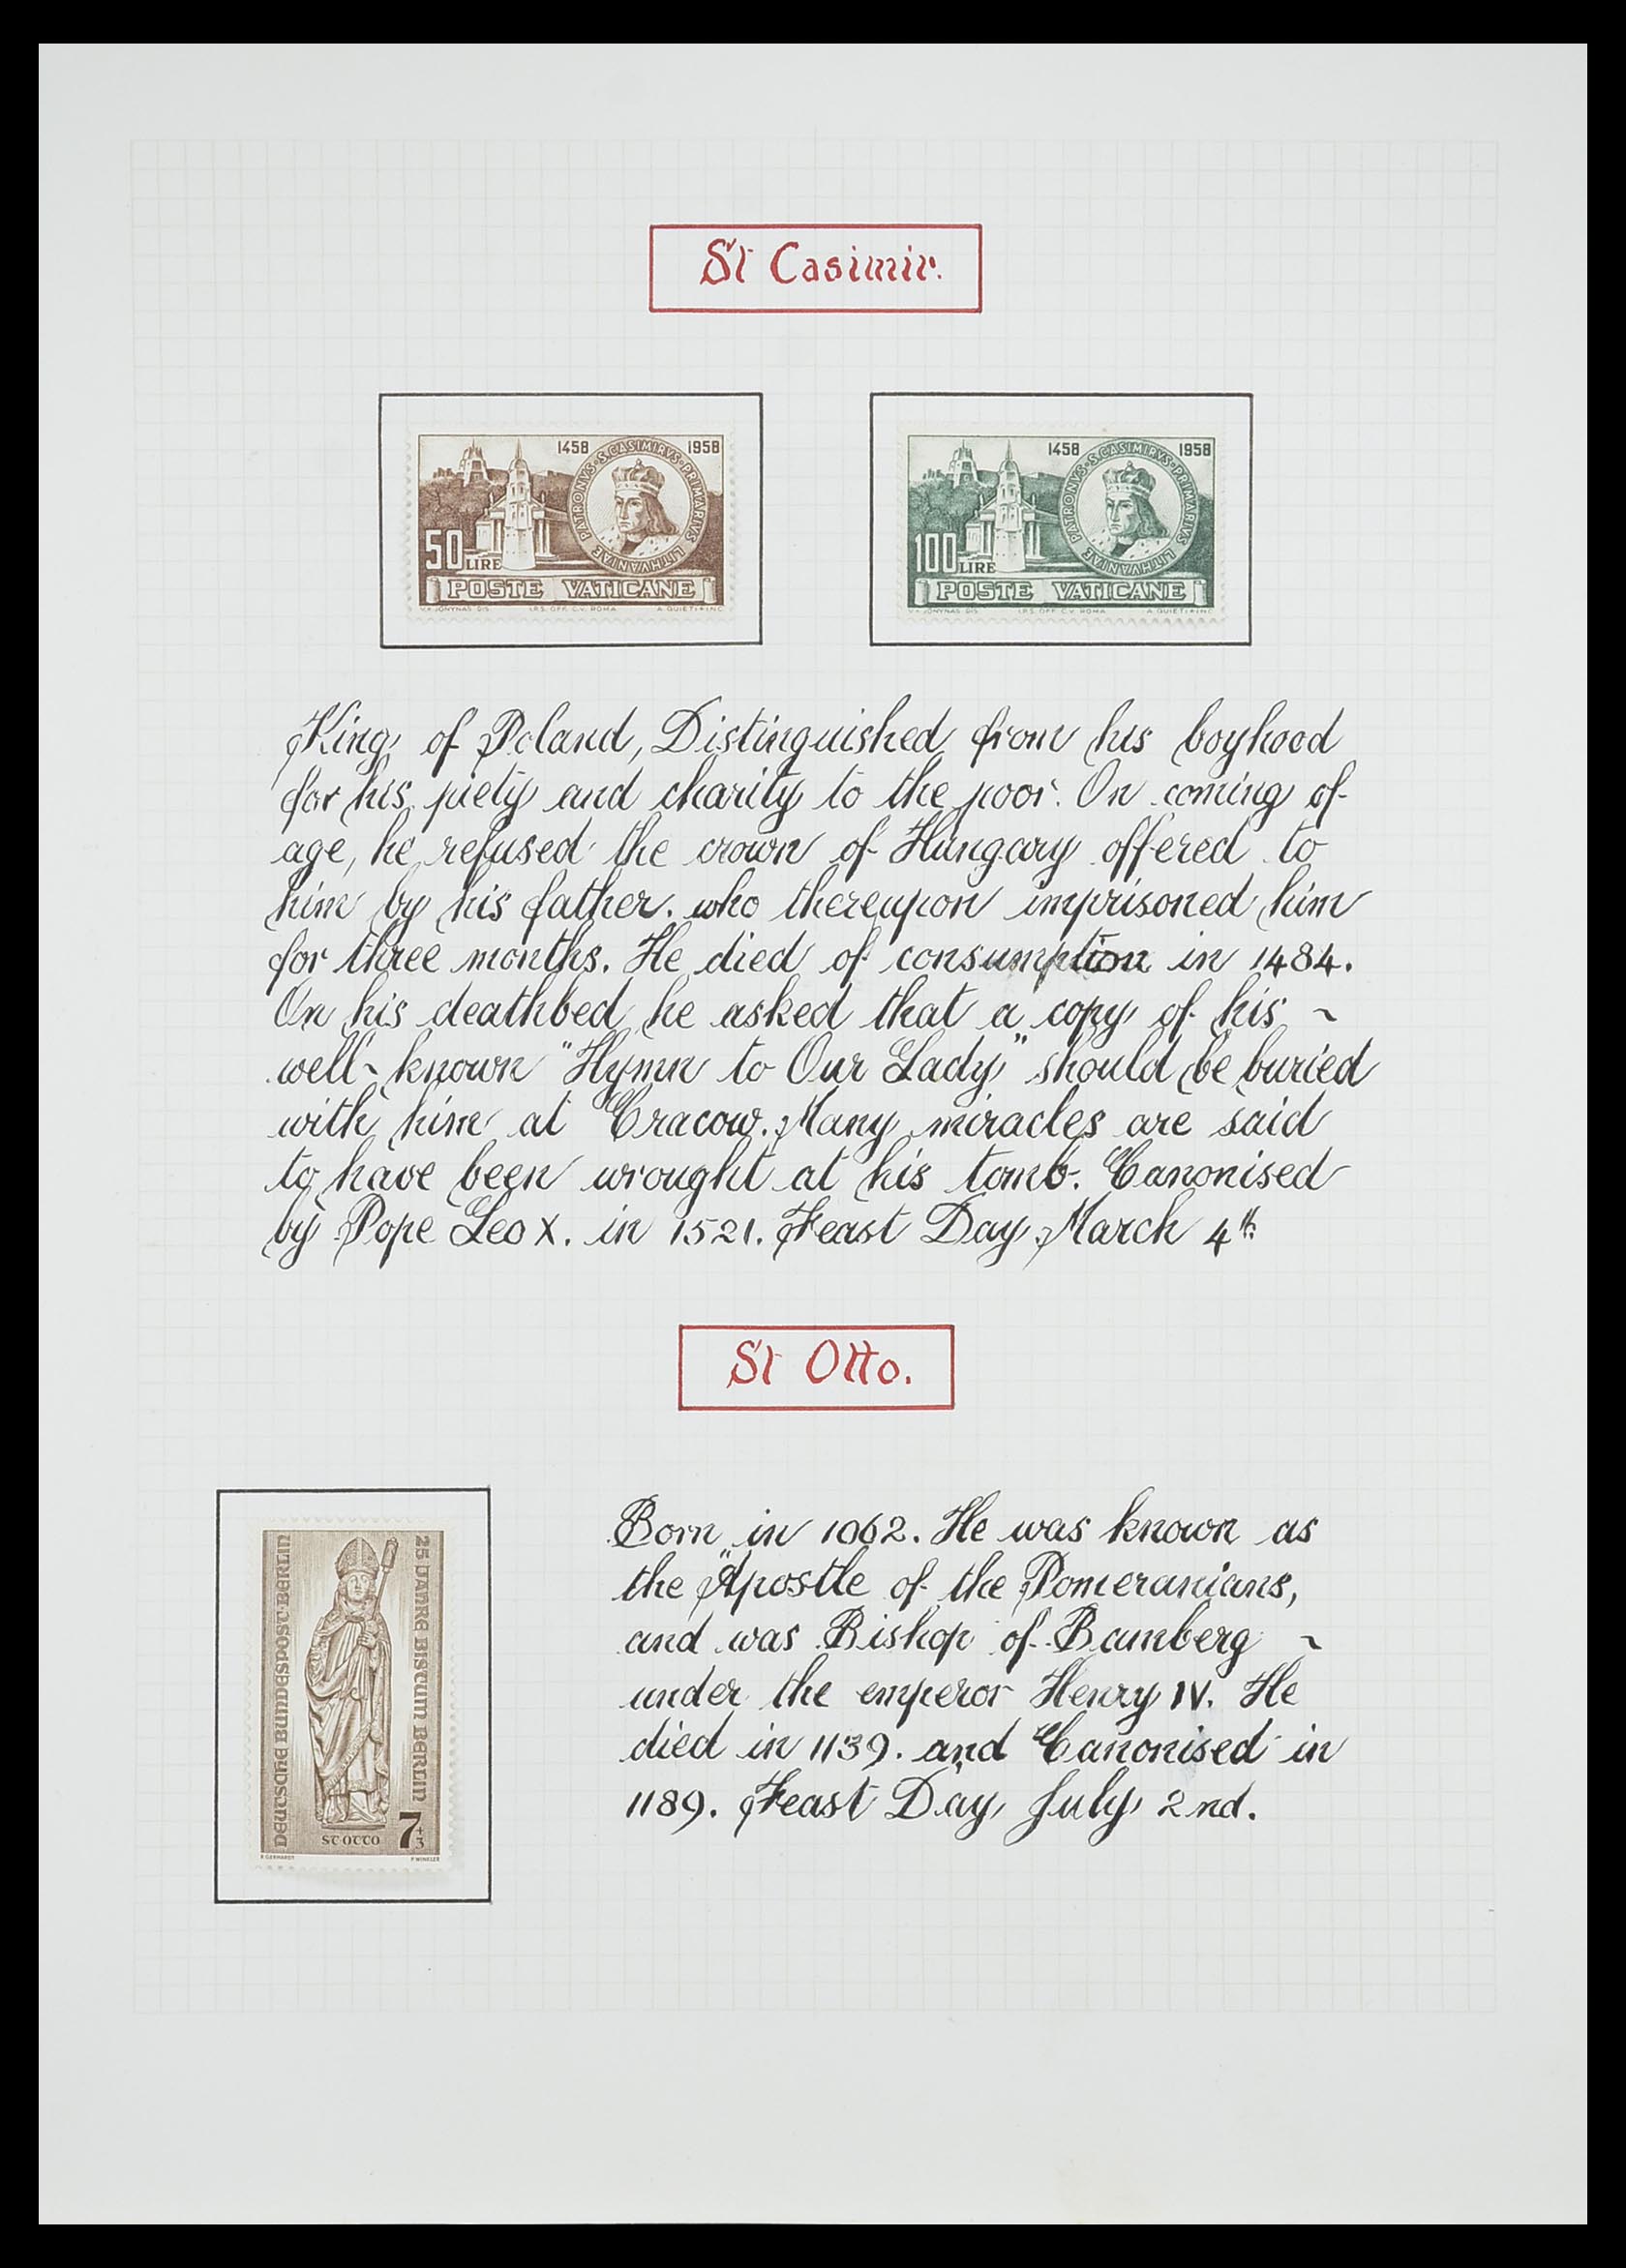 St Casimir.
1458 1958
PATRONVS · S. CASIMIRVS · PRIMARIVS LITHVANIAE
50 LIRE
POSTE VATICANE
V.K. JONYNAS DIS. I.P.S. OFF. C.V. ROMA A. QUIETI • INC.
1458 1958
PATRONVS · S. CASIMIRVS · PRIMARIVS LITHVANIAE
100 LIRE
POSTE VATICANE
V.K. JONYNAS DIS. I.P.S. OFF. C.V. ROMA A. QUIETI • INC.
King of Poland, Distinguished from his boyhood
for his piety and charity to the poor. On coming of
age, he refused the crown of Hungary offered to
him by his father. who thereupon imprisoned him
for three months. He died of consumption in 1484.
On his deathbed he asked that a copy of his ~
well-known "Hymn to Our Lady" should be buried
with him at Cracow. Many miracles are said
to have been wrought at his tomb. Canonised
by Pope Leo X. in 1521. Feast Day March 4th
St Otto.
DEUTSCHE BUNDESPOST BERLIN
25 JAHRE BISTUM BERLIN
ST OTTO
7+3
E GERHARDT F WINKLER
Born in 1062. He was known as
the "Apostle of the Pomeranians,
and was Bishop of Bamberg ~
under the emperor Henry IV. He
died in 1139. and Canonised in
1189. Feast Day July 2nd.